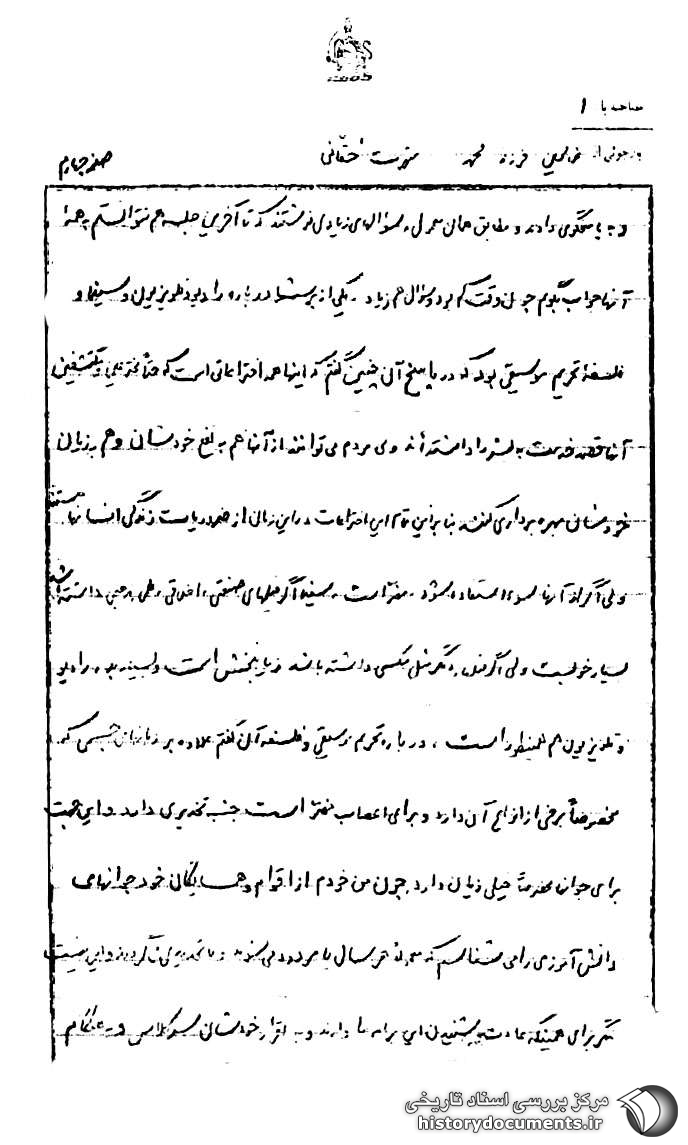 مصاحبه با ۱
بازجوئی از فرزند محمد شهرت حقانی صفحه چهارم
و به پاسخگوی دادند و مطابق همان معمول سؤالهای زیادی فرستادند که تا آخر جلسه هم نتوانستم به همهٔ
آنها جواب بگویم چون وقت کم بود و سؤال هم زیاد. یکی از پرسشها درباره رادیو و تلویزیون و سینما و
فلسفهٔ تحریم موسیقی بود که در پاسخ آن چنین گفتم که اینها همه اختراعاتی است که مکتشفین
آنها قصد خدمت به بشر را داشته‌اند ولی مردم می‌توانند از آنها هم به نفع خودشان و هم به زیان
خودشان بهره برداری کنند بنابراین تمام این اختراعات در این زمان از ضروریات زندگی انسانها هستند
ولی اگر از آنها سوء استفاده بشود مضر است. سینما اگر فیلمهای صنعتی، اخلاقی، علمی داشته باشد
بسیار خوبست ولی اگر فیلمهای سکسی داشته باشد زیانبخش است و رادیو
و تلویزیون هم همینطور است، درباره تحریم موسیقی و فلسفه آن گفتم علاوه بر زیانهای جسمی که
مخصوصاً برخی از انواع آن دارد و برای اعصاب مضر است جنبه تخدیری دارد و این جهت
برای جوانها مخصوصاً خیلی زیان دارد چون من خودم از اقوام و همسایگان خود جوانهای
دانش آموزی را می‌شناسم که هر سال یا مردود می‌شوند و یا تجدیدی می‌گردند و این نیست
مگر برای همینکه عادت به شنیدن این برنامه‌ها دارند و به اقرار خودشان سر کلاس و هنگام
مرکز بررسی اسناد تاریخی
historydocuments.ir